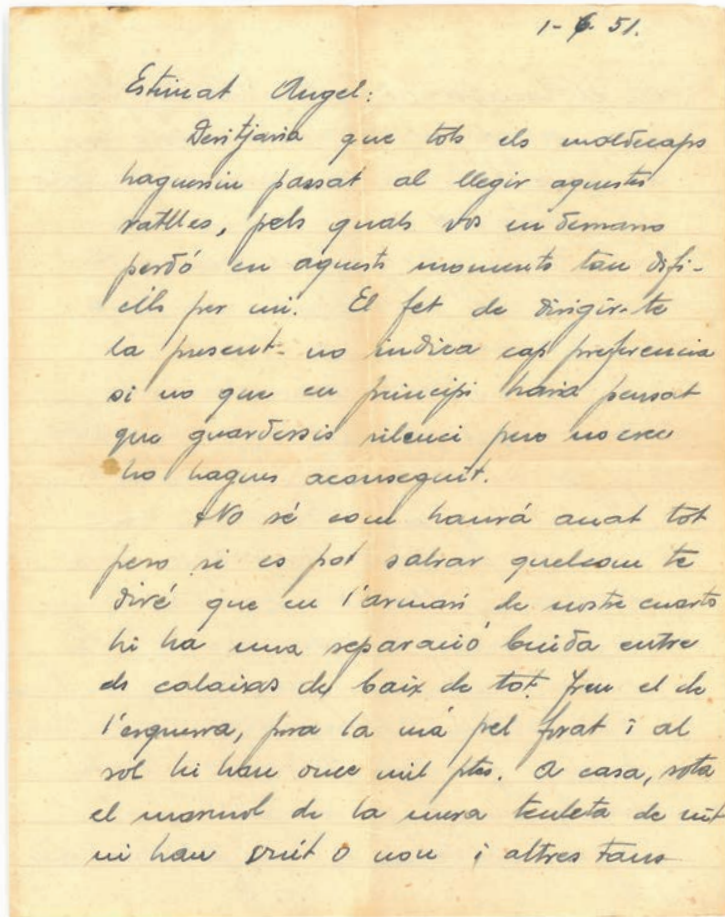 1-6-51.
Estimat Angel:
Desitjaria que tots els maldecaps
haguessin passat al llegir aquestes
ratlles, pels quals vos en demano
perdó en aquests moments tan difi-
cils per mi. El fet de dirigir-te
la present no indica cap preferencia
si no que en principi havia pensat
que guardessis silenci pero no crec
ho hagues aconseguit.
No sé com haurá anat tot
pero si es pot salvar quelcom te
diré que en l'armari de nostre cuarto
hi ha una separació buida entre
els calaixas de baix de tot. Treu el de
l'esquerra, posa la má pel forat i al
sol hi han onze mil ptes. A casa, sota
el marmol de la meva tauleta de nit
ni han vuit o nou i altres tans